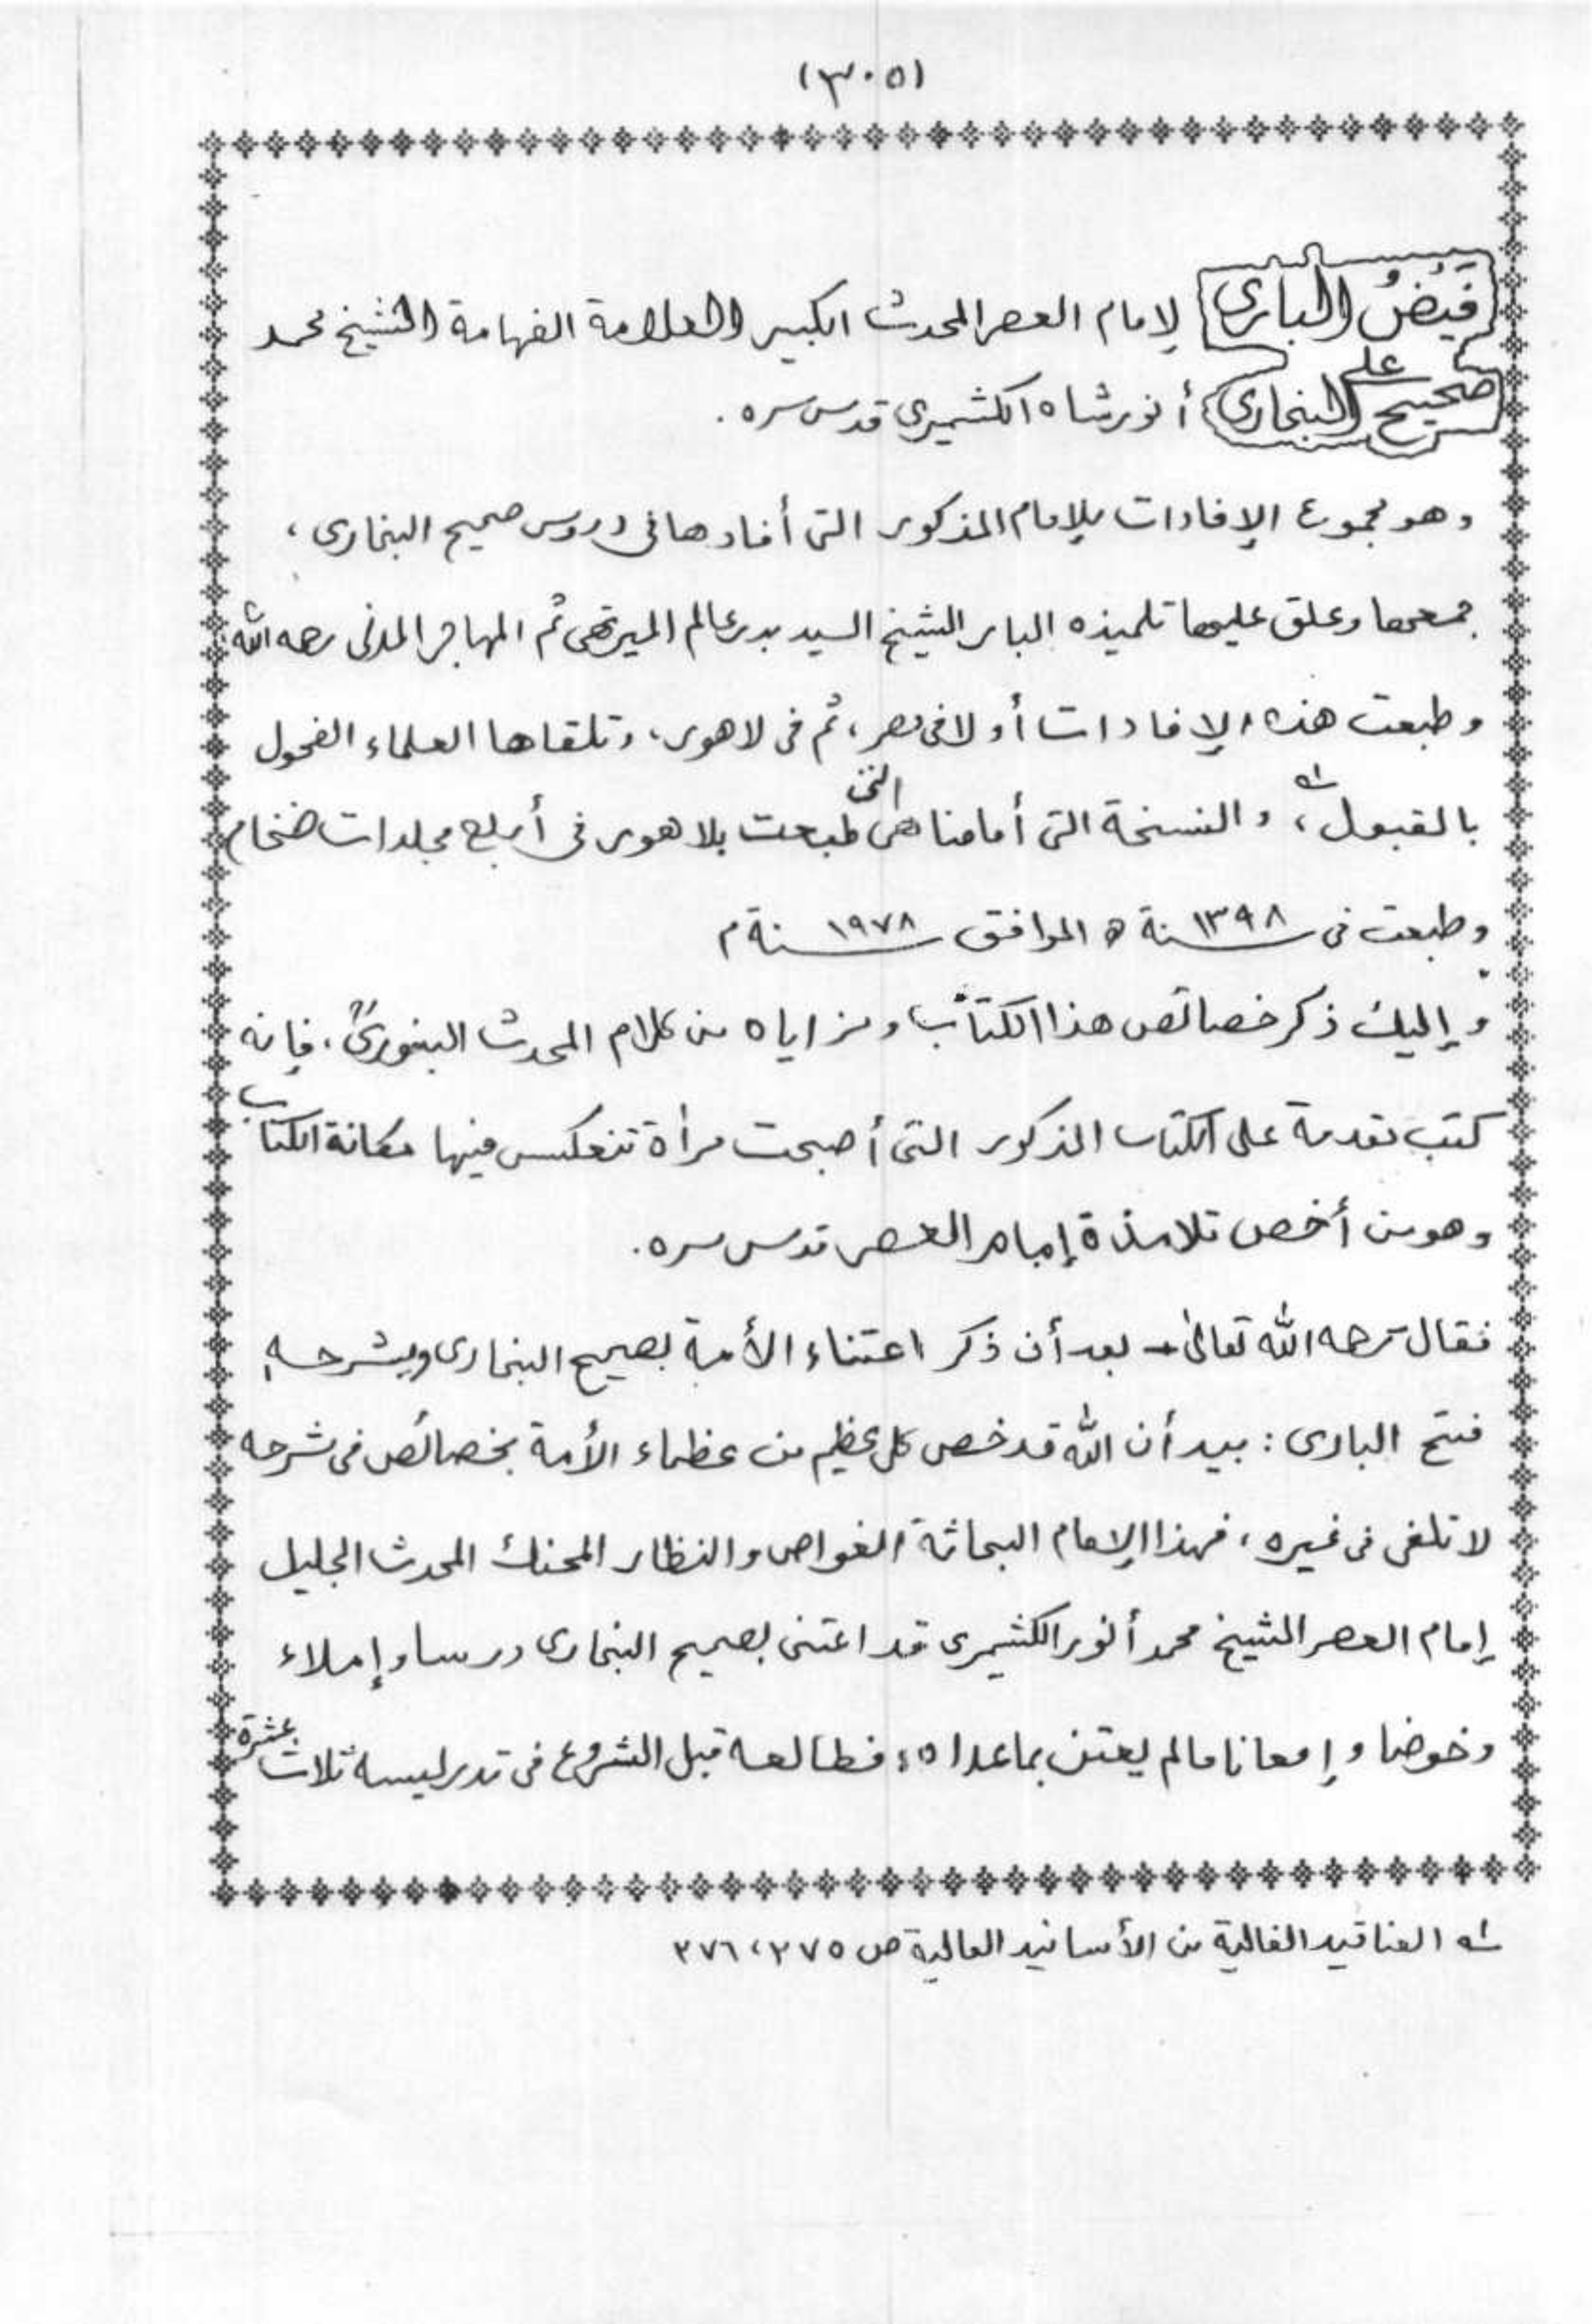 (٣٠٥)
فَيْضُ البارى لإمام العصر المحدث الكبير العلامة الفهامة الشيخ محمد
على
صحيح البخارى أنور شاه الكشميرى قدس سره .
وهو مجموع الإفادات للإمام المذكور التى أفادها فى دروس صحيح البخارى ،
جمعها وعلق عليها تلميذه البار الشيخ السيد بدر عالم الميرتهى ثم المهاجر المدنى رحمه الله
وطبعت هذه الإفادات أولا فى مصر ، ثم فى لاهور ، وتلقاها العلماء الفحول
بالقبول ،له والنسخة التى أمامنا هى التى طبعت بلاهور فى أربع مجلدات ضخام
وطبعت فى ١٣٩٨سنة ه الموافق ١٩٧٨سنة م
وإليك ذكر خصائص هذا الكتاب ومزاياه من كلام المحدث البنورىؒ ، فإنه
كتب تقدمة على الكتاب المذكور التى أصبحت مرأة تنعكس فيها مكانة الكتاب
وهو من أخص تلامذة إمام العصر قدس سره .
فقال رحمه الله تعالىٰ - بعد أن ذكر اعتناء الأمة بصحيح البخارى وبشرحه
فتح البارى : بيد أن الله قد خص كل عظيم من عظماء الأمة بخصائص فى شرحه
لا تلفى فى غيره ، فهذا الإمام البحاثة الغواص والنظار المحنك المحدث الجليل
إمام العصر الشيخ محمد أنور الكشيمرى قد اعتنى بصحيح البخارى درسا وإملاء
وخوضا وإمعانا مالم يعتن بماعداه ؛ فطالعه قبل الشروع فى تدريسه ثلاث عشرة
له العناقيد الغالية من الأسانيد العالية ص ٢٧٥ ، ٢٧٦